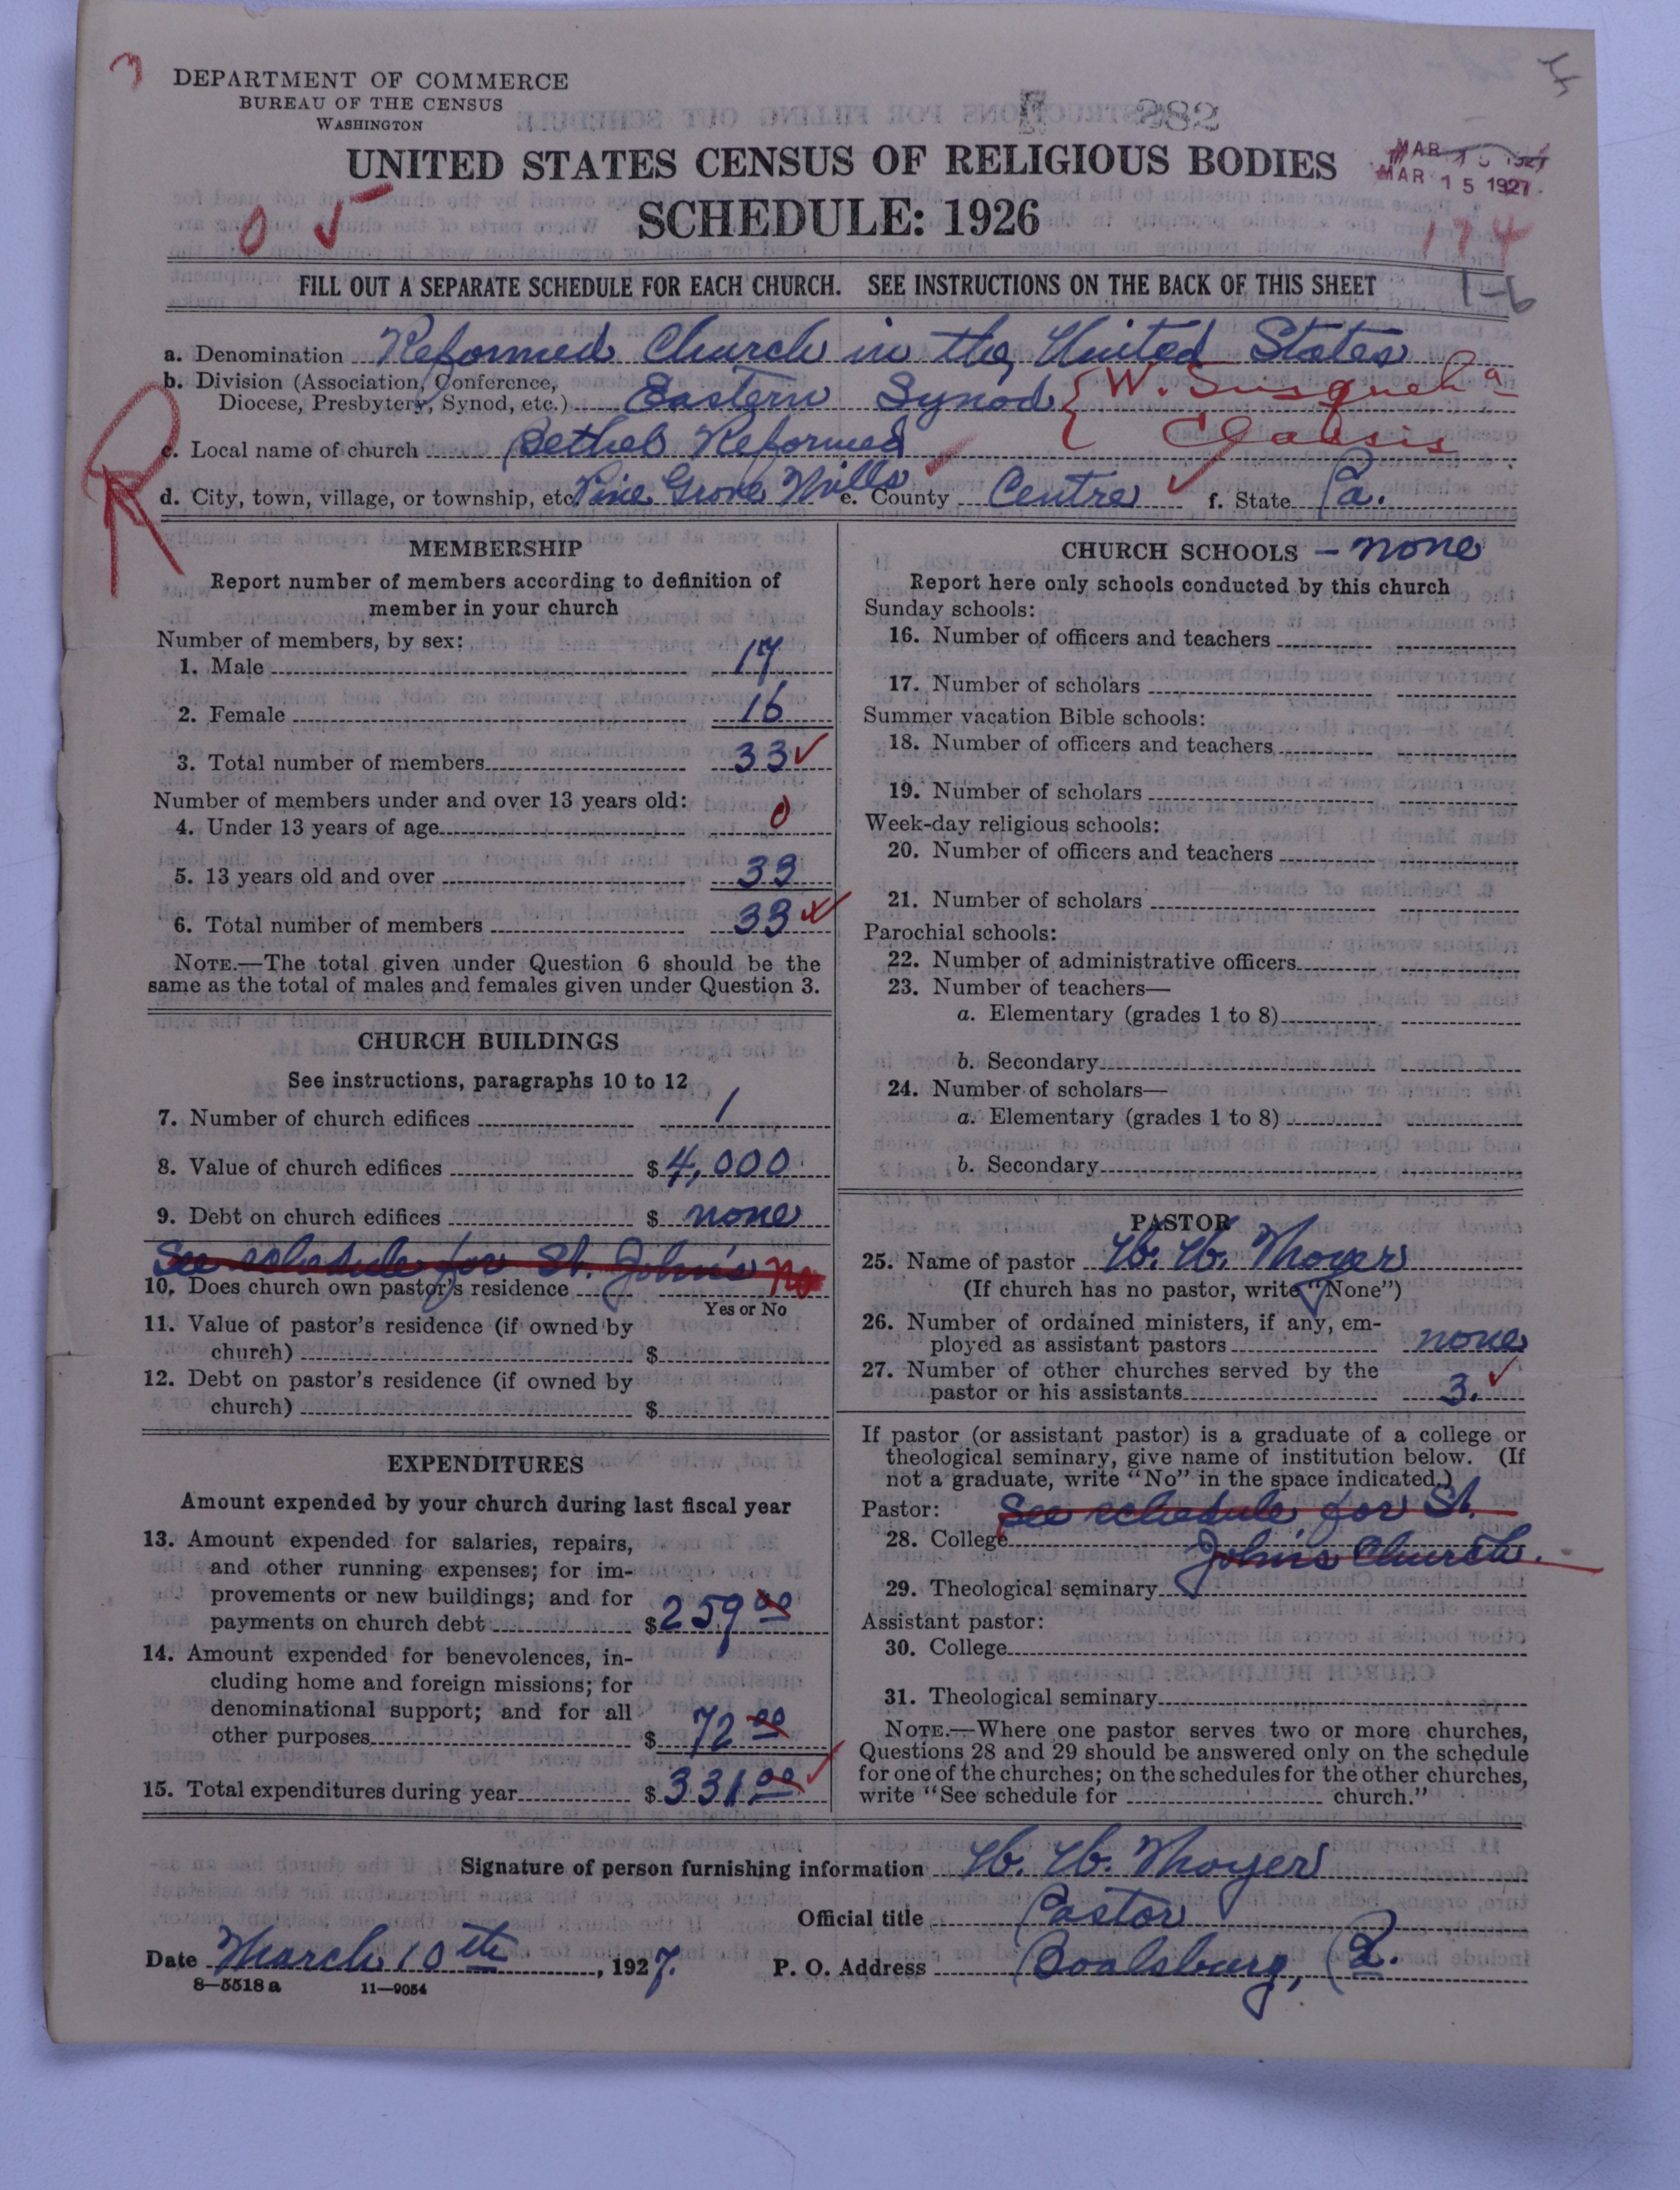 DEPARTMENT OF COMMERCE
BUREAU OF THE CENSUS
WASHINGTON
882
UNITED STATES CENSUS OF RELIGIOUS BODIES
SCHEDULE: 1926
MAR 15 1927
MAR 15 1927
0 5
174
FILL OUT A SEPARATE SCHEDULE FOR EACH CHURCH. SEE INSTRUCTIONS ON THE BACK OF THIS SHEET
1-6
a. Denomination Reformed Church in the United States
b. Division (Association, Conference,
Diocese, Presbytery, Synod, etc.) Eastern Synod { W. Susqueha
Classis
c. Local name of church Bethel Reformed
d. City, town, village, or township, etc. Pine Grove Mills e. County Centre f. State Pa.
R
MEMBERSHIP
Report number of members according to definition of
member in your church
Number of members, by sex:
1. Male 17
2. Female 16
3. Total number of members 33
Number of members under and over 13 years old:
4. Under 13 years of age 0
5. 13 years old and over 33
6. Total number of members 33
NOTE.—The total given under Question 6 should be the
same as the total of males and females given under Question 3.
CHURCH BUILDINGS
See instructions, paragraphs 10 to 12
7. Number of church edifices 1
8. Value of church edifices $4,000
9. Debt on church edifices $ none
See schedule for St. John's No
10. Does church own pastor's residence
Yes or No
11. Value of pastor's residence (if owned by
church) $
12. Debt on pastor's residence (if owned by
church) $
EXPENDITURES
Amount expended by your church during last fiscal year
13. Amount expended for salaries, repairs,
and other running expenses; for im-
provements or new buildings; and for
payments on church debt $259 00
14. Amount expended for benevolences, in-
cluding home and foreign missions; for
denominational support; and for all
other purposes $ 72 00
15. Total expenditures during year $331 00
CHURCH SCHOOLS - none
Report here only schools conducted by this church
Sunday schools:
16. Number of officers and teachers
17. Number of scholars
Summer vacation Bible schools:
18. Number of officers and teachers
19. Number of scholars
Week-day religious schools:
20. Number of officers and teachers
21. Number of scholars
Parochial schools:
22. Number of administrative officers
23. Number of teachers—
a. Elementary (grades 1 to 8)
b. Secondary
24. Number of scholars—
a. Elementary (grades 1 to 8)
b. Secondary
PASTOR
25. Name of pastor W. W. Moyer
(If church has no pastor, write "None")
26. Number of ordained ministers, if any, em-
ployed as assistant pastors none
27. Number of other churches served by the
pastor or his assistants 3.
If pastor (or assistant pastor) is a graduate of a college or
theological seminary, give name of institution below. (If
not a graduate, write "No" in the space indicated.)
Pastor: See schedule for St.
28. College John's Church.
29. Theological seminary
Assistant pastor:
30. College
31. Theological seminary
NOTE.—Where one pastor serves two or more churches,
Questions 28 and 29 should be answered only on the schedule
for one of the churches; on the schedules for the other churches,
write "See schedule for church."
Signature of person furnishing information W. W. Moyer
Official title Pastor
Date March 10th, 1927. P. O. Address Boalsburg, Pa.
8-5518 a 11-9054